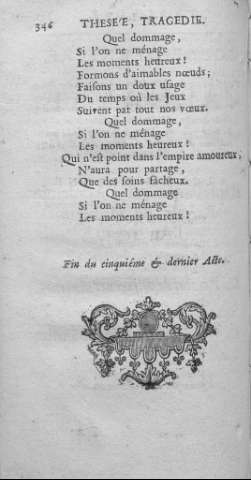 346 THESE'E, TRAGEDIE.
Quel dommage,
Si l'on ne ménage
Les moments heureux!
Formons d'aimables nœuds;
Faisons un doux usage
Du temps où les Jeux
Suivent par tout nos vœux.
Quel dommage,
Si l'on ne ménage
Les moments heureux!
Qui n'est point dans l'empire amoureux,
N'aura pour partage,
Que des soins fâcheux.
Quel dommage
Si l'on ne ménage
Les moments heureux!
Fin du cinquiéme & dernier Acte.